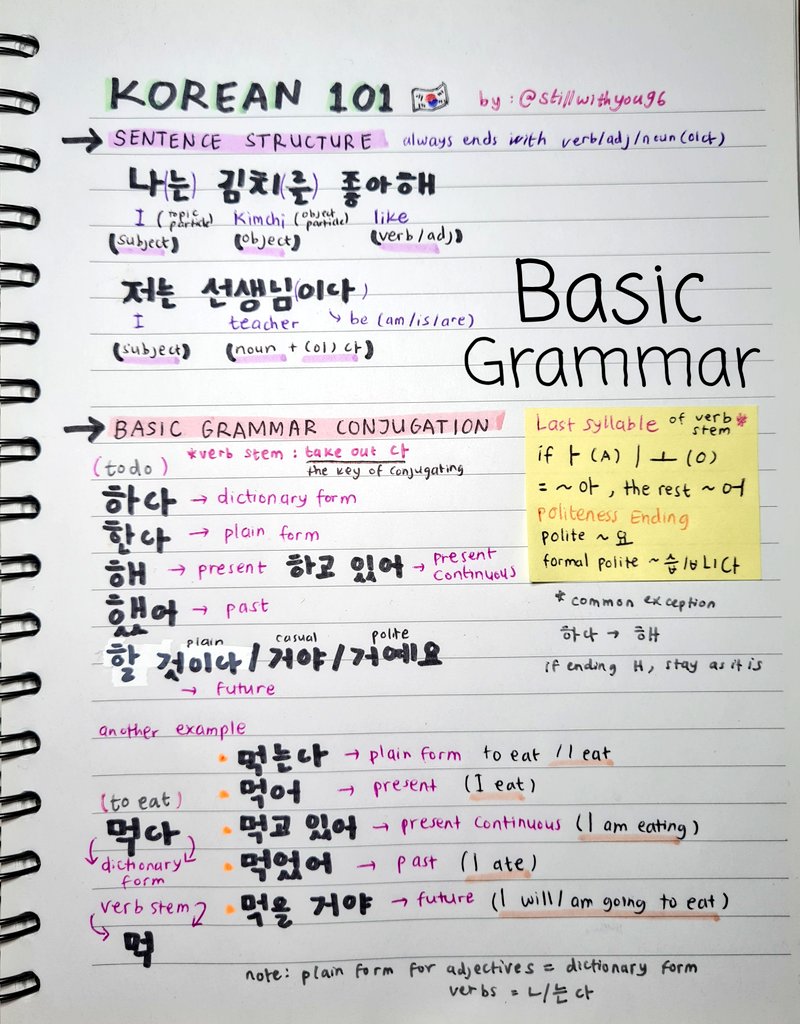 KOREAN 101 by: @stillwithyou96
→ SENTENCE STRUCTURE always ends with verb/adj/noun(이다)
나(는) 김치(를) 좋아해
I (topic particle) Kimchi (object particle) like
(subject) (object) (verb/adj)
저는 선생님(이다)
I teacher ↳ be (am/is/are)
(subject) (noun + (이)다)
Basic
Grammar
→ BASIC GRAMMAR CONJUGATION
(to do) *verb stem: take out 다
the key of conjugating
하다 → dictionary form
한다 → plain form
해 → present 하고 있어 → present continuous
했어 → past
plain casual polite
할 것이다/거야/거예요
→ future
Last syllable of verb stem *
if ㅏ(A) | ㅗ(O)
= ~아, the rest ~어
politeness Ending
polite ~요
formal polite ~습/ㅂ니다
* common exception
하다 → 해
if ending ㅐ, stay as it is
another example
• 먹는다 → plain form to eat / I eat
(to eat) • 먹어 → present (I eat)
먹다 • 먹고 있어 → present continuous (I am eating)
dictionary form • 먹었어 → past (I ate)
verb stem • 먹을 거야 → future (I will/am going to eat)
먹
note: plain form for adjectives = dictionary form
verbs = ㄴ/는다